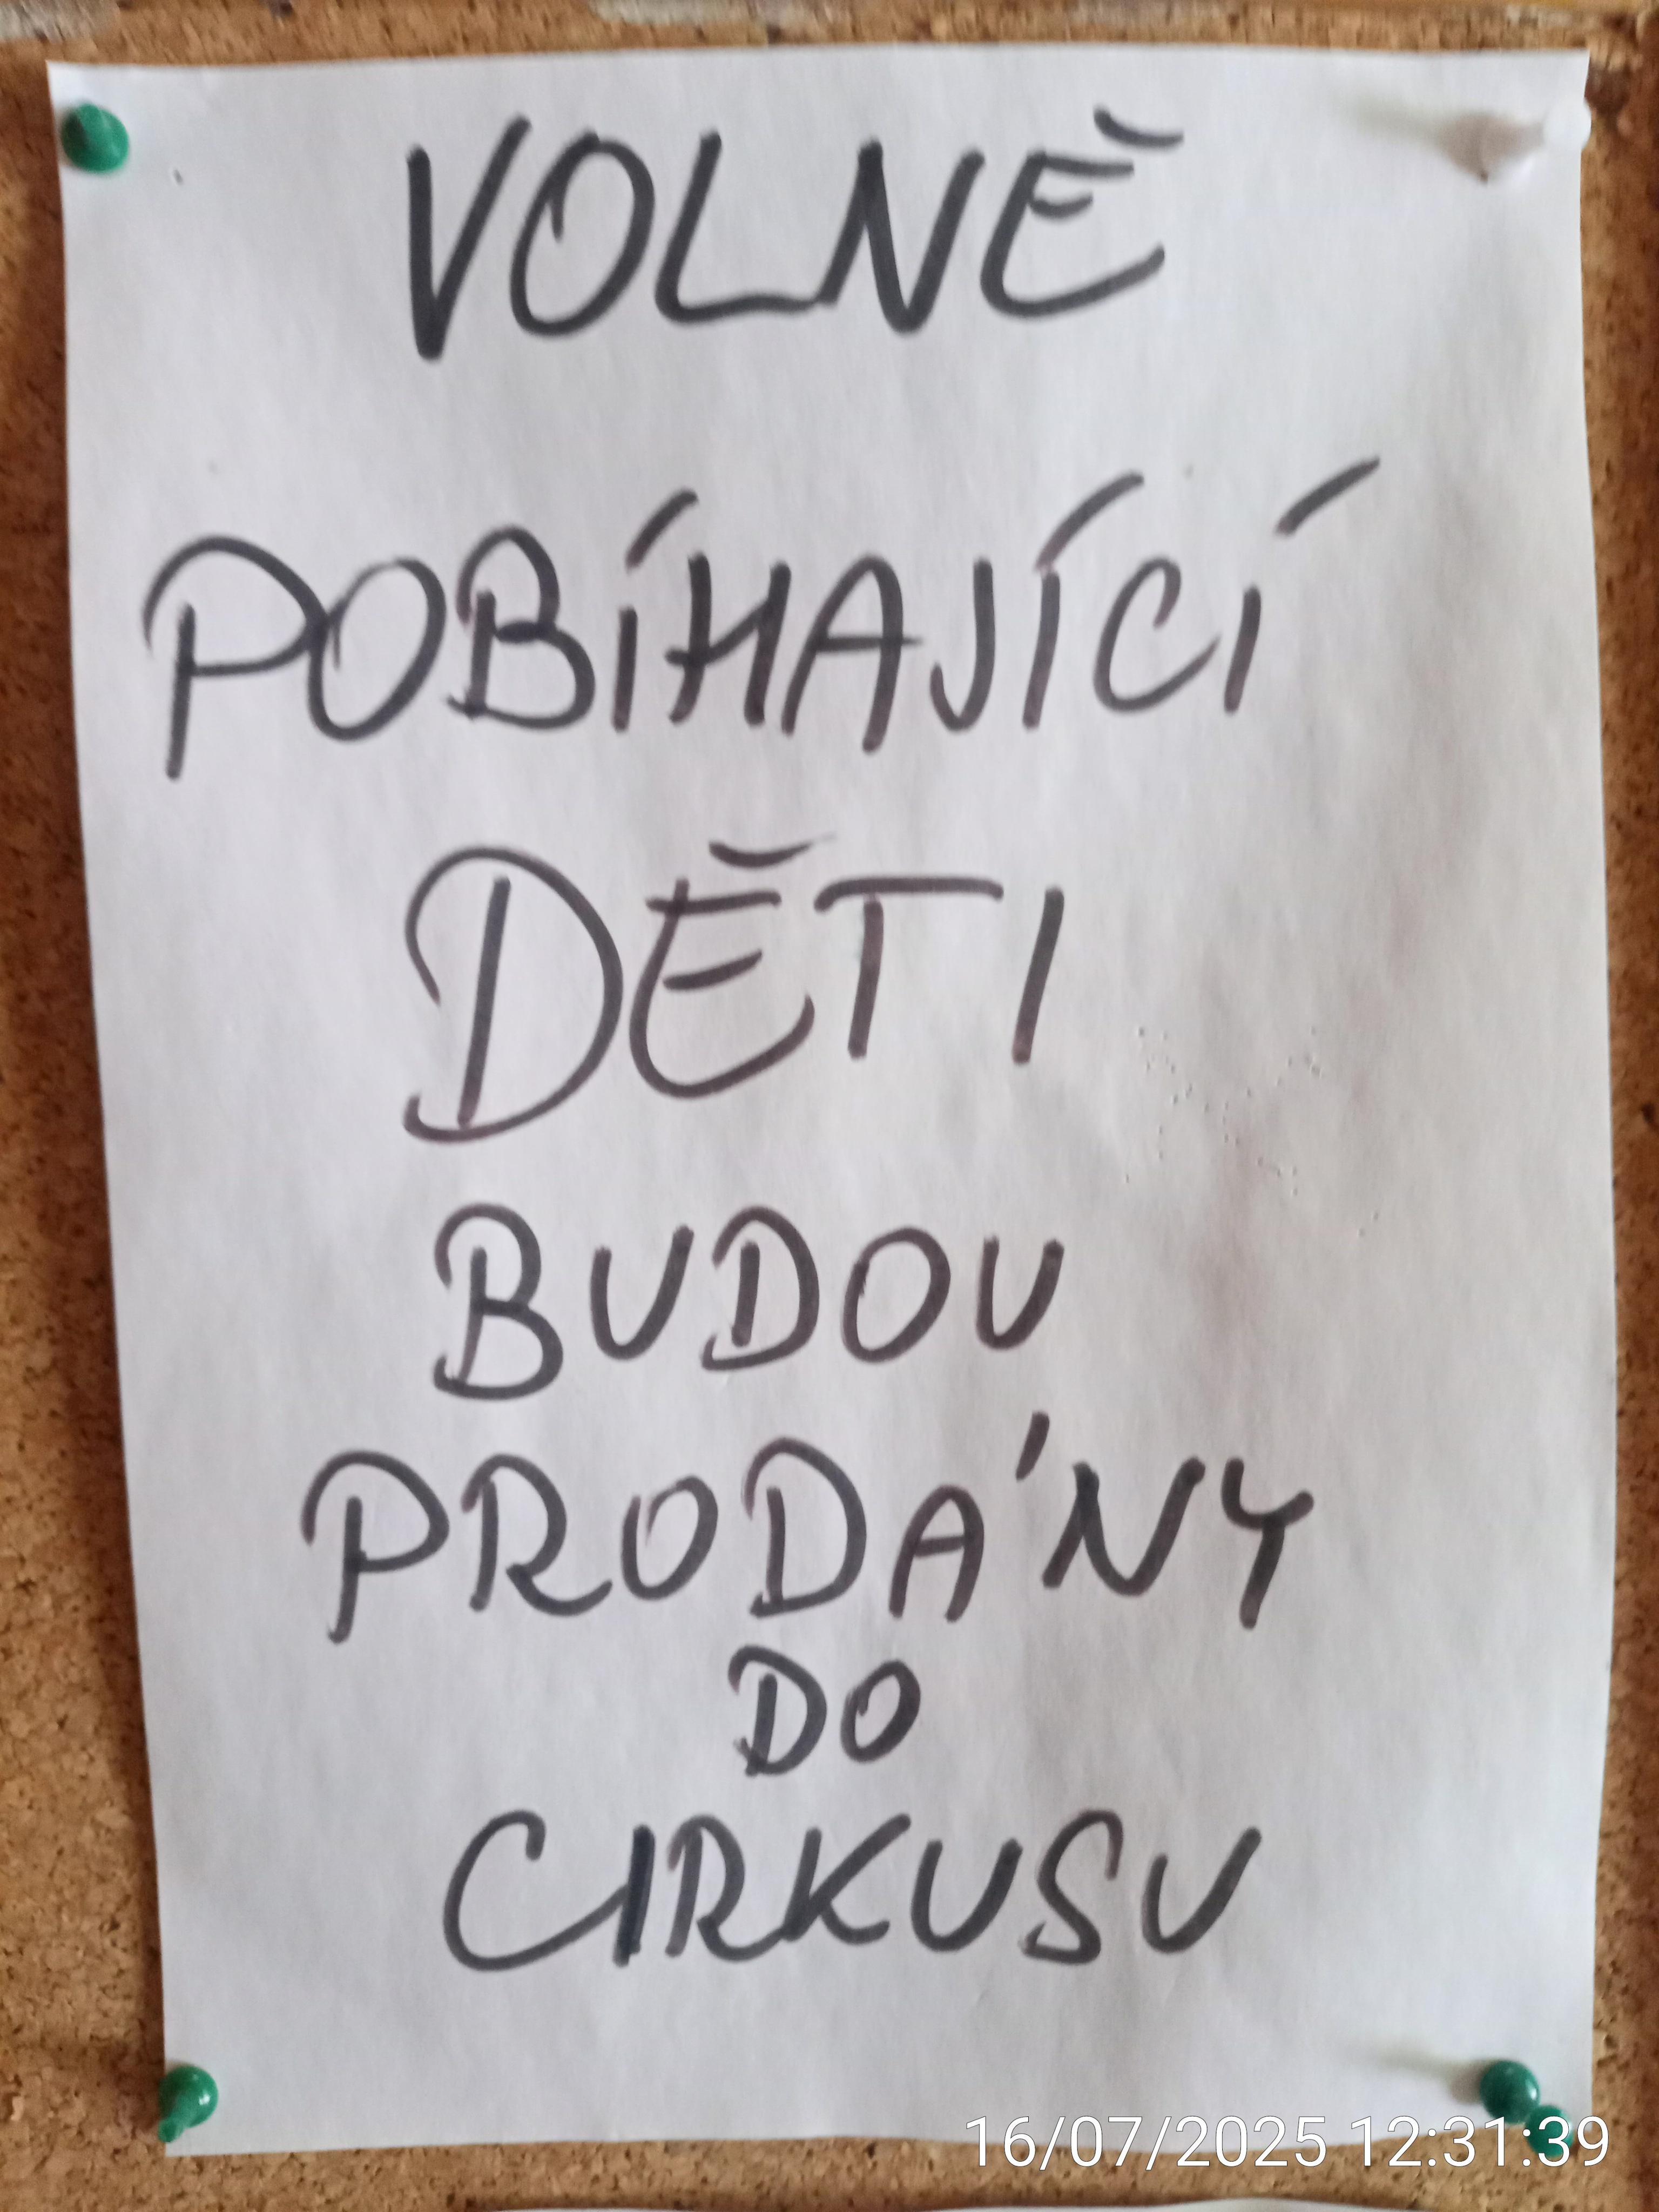 VOLNĚ
POBÍHAJÍCÍ
DĚTI
BUDOU
PRODÁNY
DO
CIRKUSU
16/07/2025 12:31:39